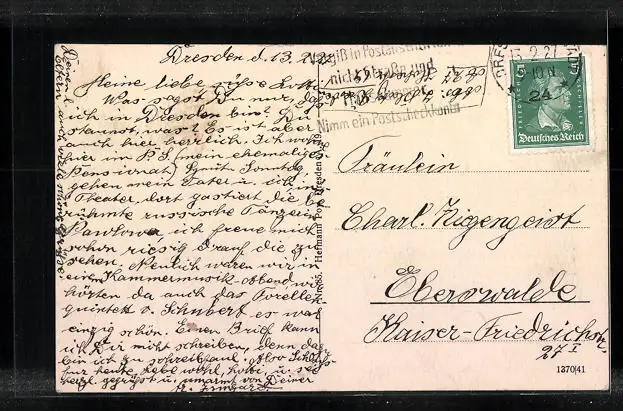 Dresden d. 13. 2. 27
Meine liebe süsse Lotti
Was sagst Du nur, daß
ich in Dresden bin? Du
staunst, was? Es ist aber
auch hier herrlich. Ich wohn
hier im P. J. (mein ehemaliges
Pensionat)
gehen mein Vater u. ich in
Theater, dort gastiert die be
rühmte russische Tänzerin
Pawlowa, ich freue mich
schon riesig drauf die zu
sehen. Neulich waren wir in
einem Kammermusik-Abend, wir
hörten da auch das Forellen
quintett v. Schubert es war
einzig schön. Einen Brief kann
ich Dir nicht schreiben, denn da
bin ich zu schreibfaul. Also Schluß
für heute, lebe wohl, Lotti, u. sei
herzl. gegrüßt u. umarmt von Deiner
Irmgard
Nimm ein Postscheckkonto
Hermann Poy, Dresden
DRESDEN
13.2.27
24
5
Deutsches Reich
Fräulein
Charl. Ziegengeist
Eberswalde
Kaiser-Friedrichstr.
27 I
1370|41